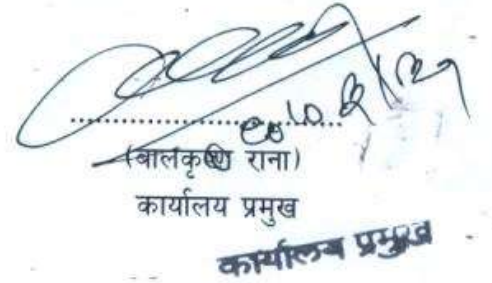 (बालकृष्ण राना)
कार्यालय प्रमुख
कार्यालय प्रमुख